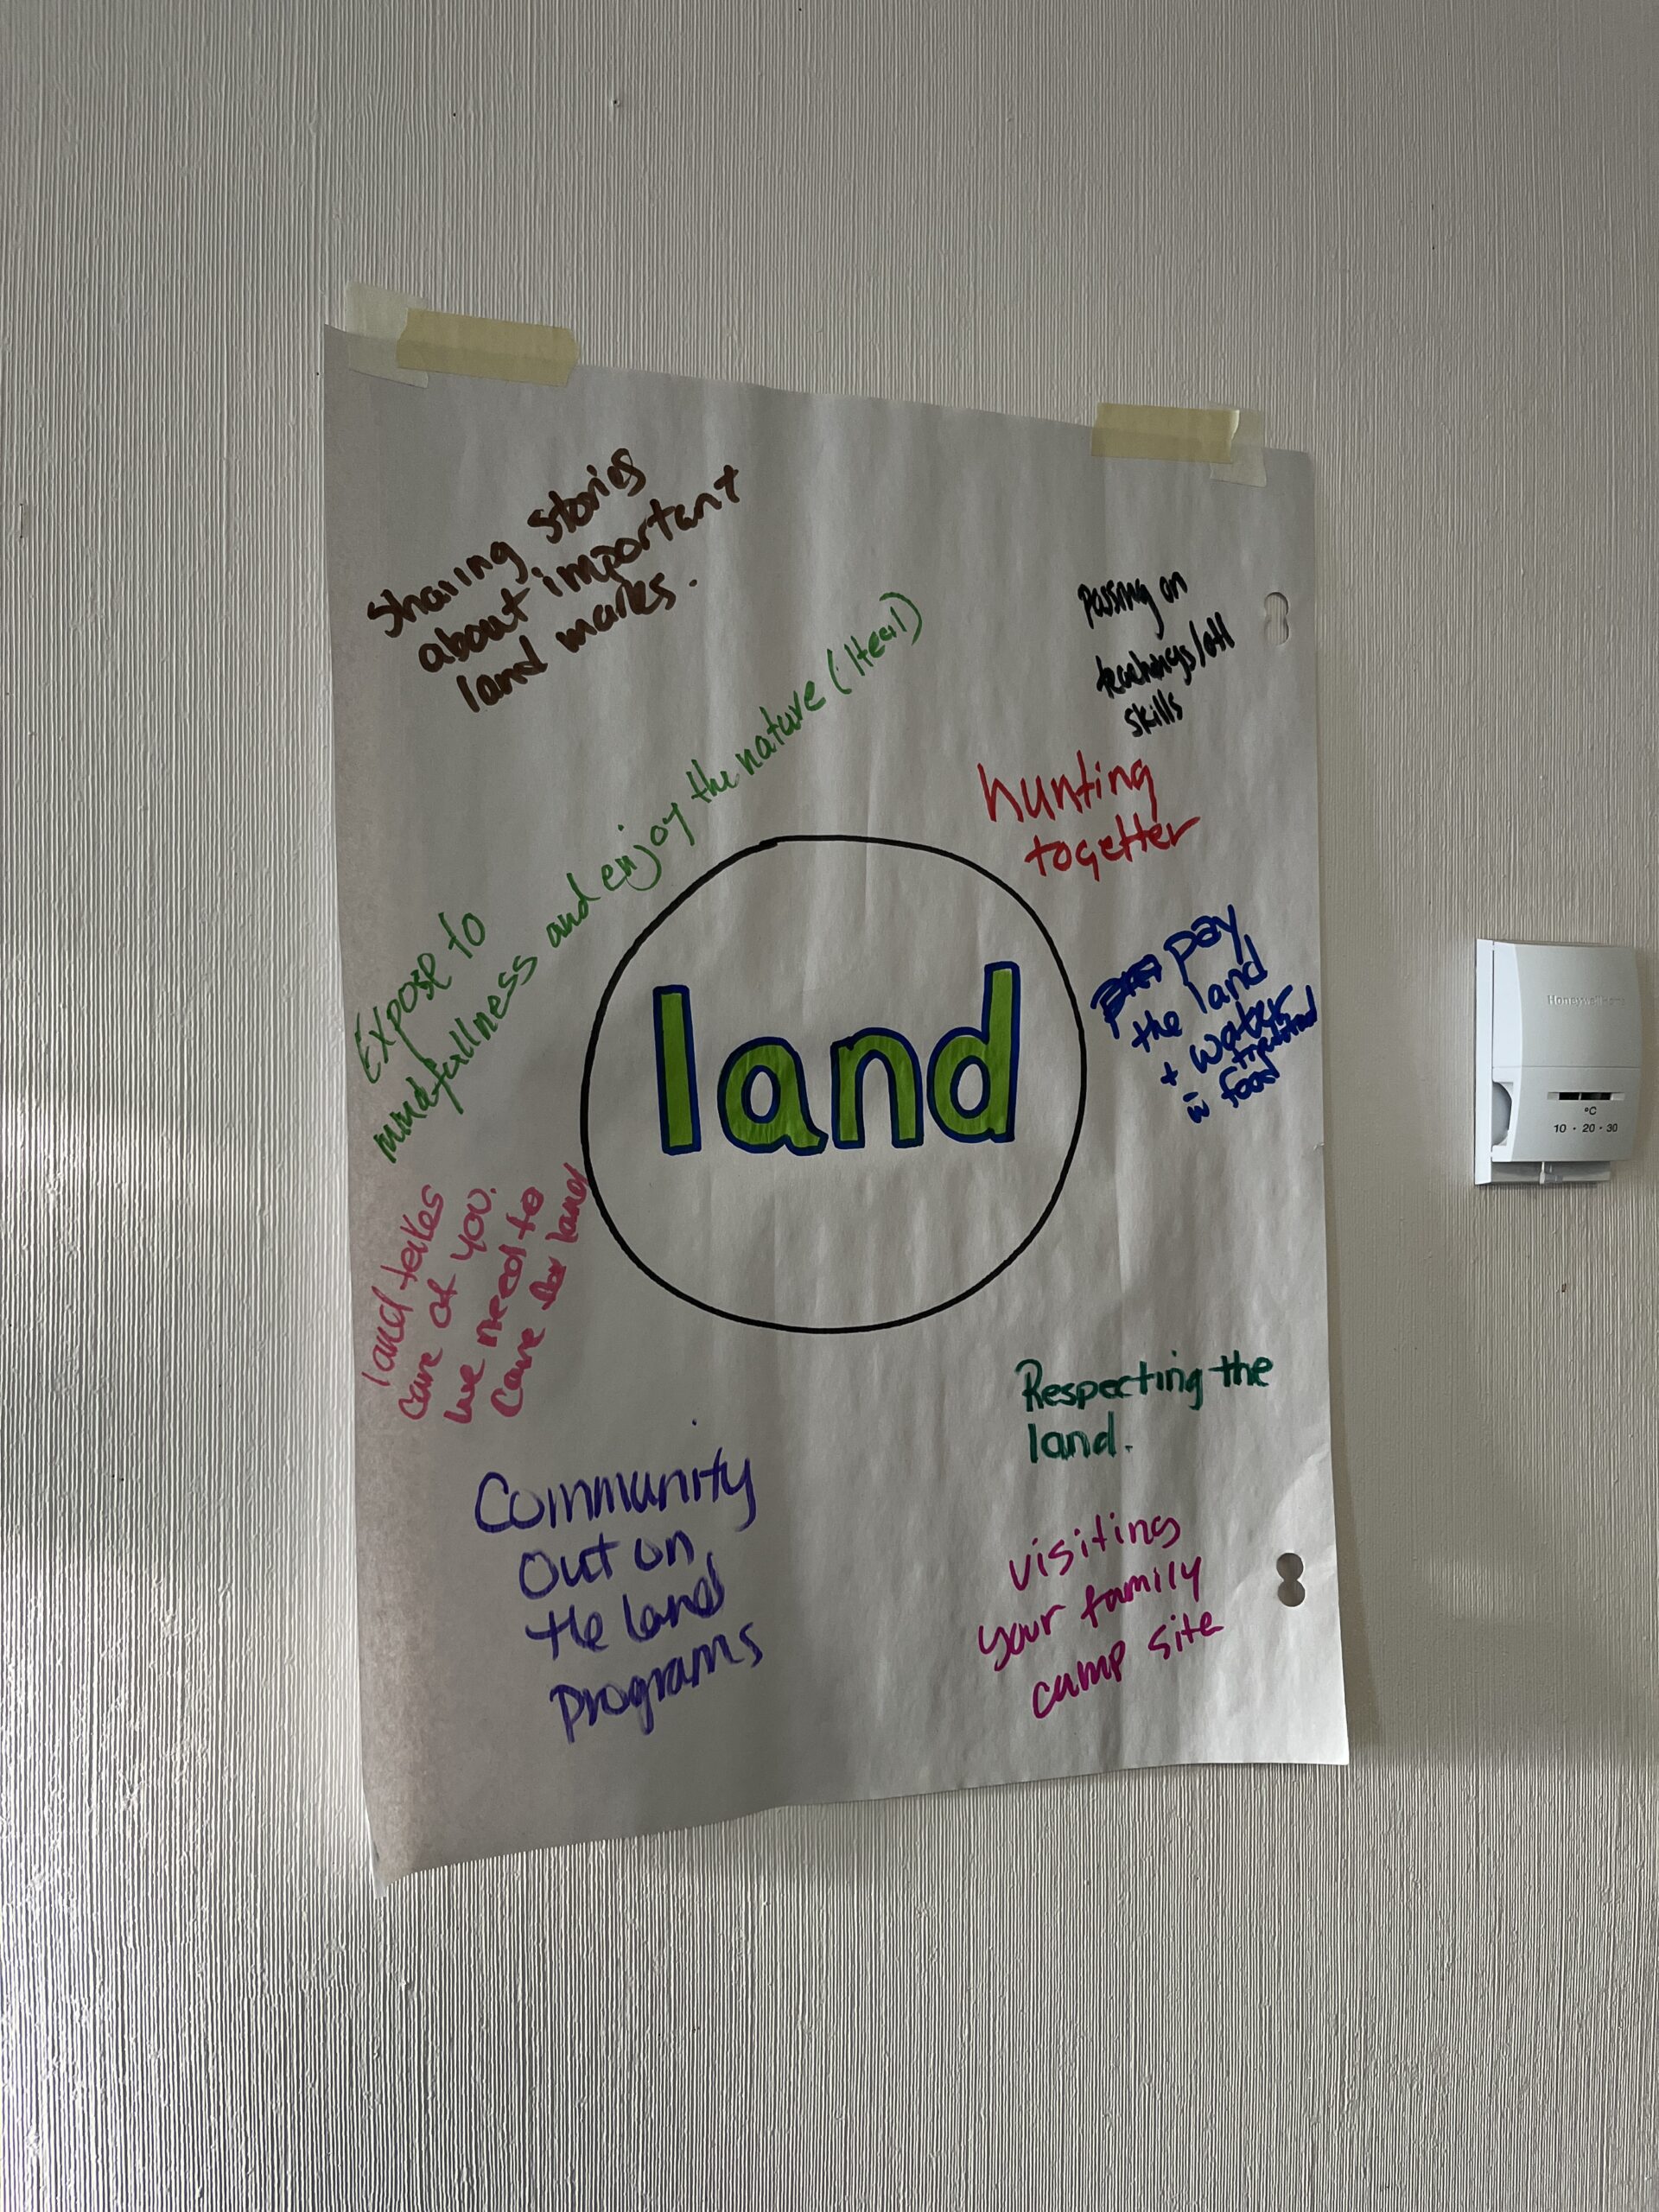 Sharing stories
about important
land marks.
Passing on
teachings/otl
skills
Expose to
mindfullness and enjoy the nature (Heal)
hunting
together
land
pay
the land
+ waters
in food
land takes
care of you.
we need to
care for land
Respecting the
land.
Community
Out on
the land
programs
visiting
your family
camp site
Honeywell
°C
10 · 20 · 30